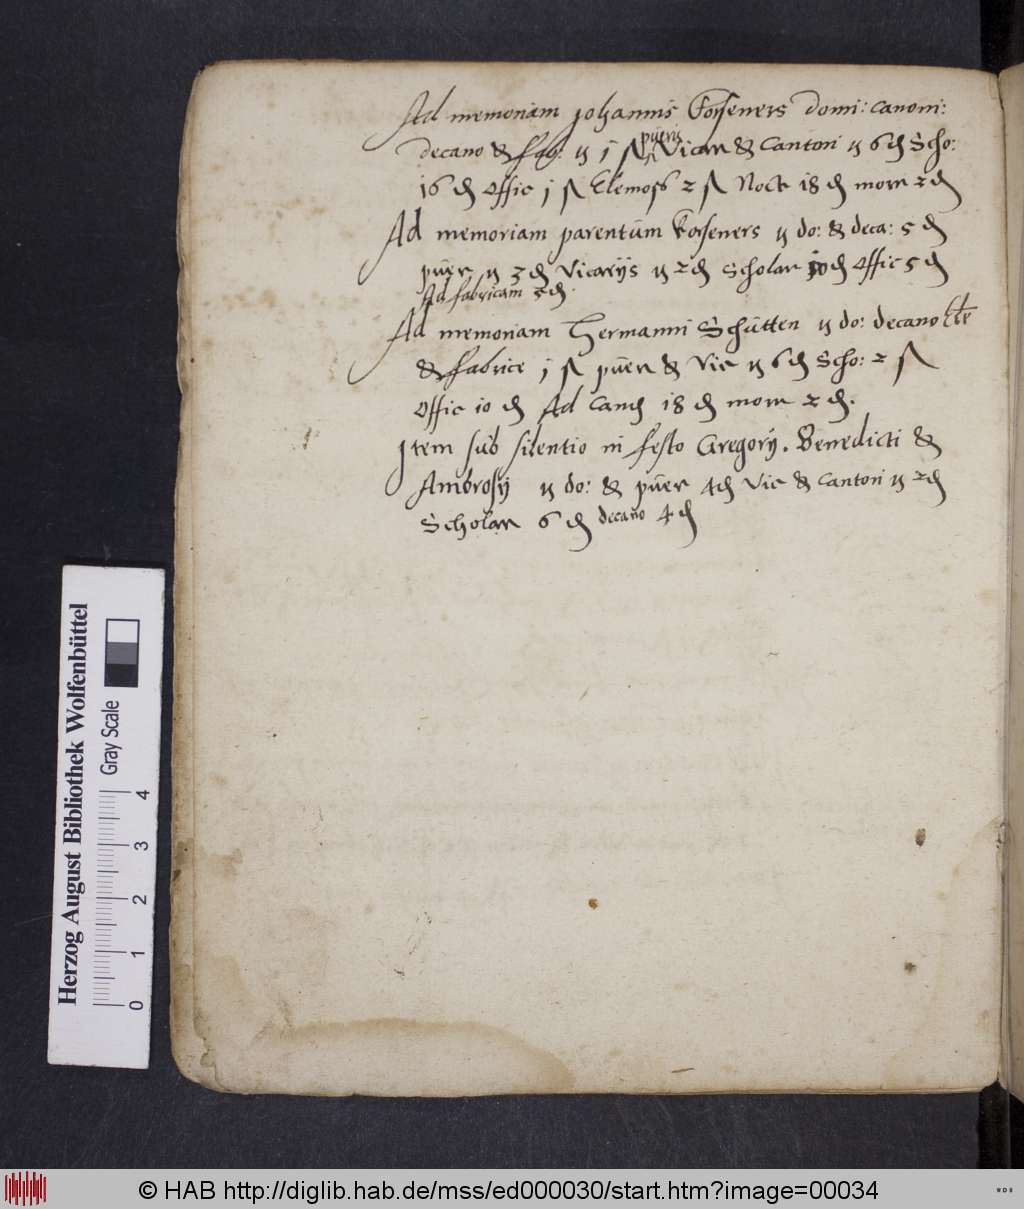 Ad memoriam Johannis Korseners domi: canoni:
decano & fab: ij j ß pueris Vicar & Cantori ij 6 ₰ Scho:
16 ₰ Offic j ß Elemos 2 ß Noct 18 ₰ mon 2 ₰
Ad memoriam parentum Korseners ij do: & deca: 5 ₰
puer ij 3 ₰ Vicarijs ij 2 ₰ Scholar 10 ₰ Offic 5 ₰
Ad fabricam 3 ₰
Ad memoriam Hermanni Schütten ij do: decano
& fabrice j ß puer & Vic ij 6 ₰ Scho: 2 ß
Offic 10 ₰ Ad Cand 18 ₰ mon 2 ₰.
Item sub silentio in festo Gregorij. Benedicti &
Ambrosij ij do: & puer 4 ₰ Vic & Cantori ij 2 ₰
Scholar 6 ₰ decano 4 ₰
Herzog August Bibliothek Wolfenbüttel
Gray Scale
0 1 2 3 4
© HAB http://diglib.hab.de/mss/ed000030/start.htm?image=00034